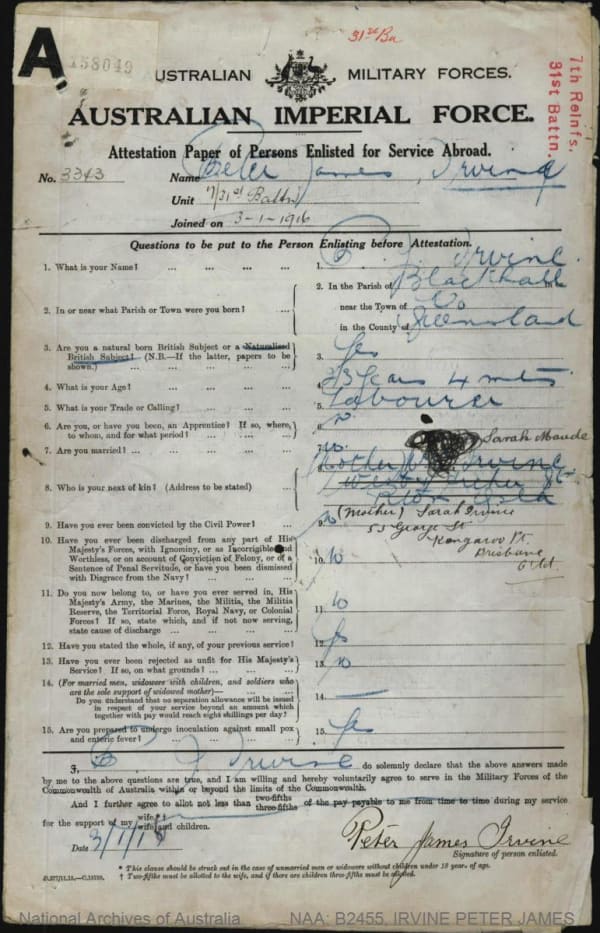 A
158049
31st Bn
AUSTRALIAN MILITARY FORCES.
AUSTRALIAN IMPERIAL FORCE.
7th Reinfs.
31st Battn.
Attestation Paper of Persons Enlisted for Service Abroad.
No. 3343 Name Peter James Irvine
Unit 7/31st Battn
Joined on 3-1-1916
Questions to be put to the Person Enlisting before Attestation.
1. What is your Name? ... ... ... ... 1. P. J. Irvine
2. In or near what Parish or Town were you born? ... 2. In the Parish of Blackhall
near the Town of Co
in the County of Queensland
3. Are you a natural born British Subject or a Naturalized British Subject? (N.B.—If the latter, papers to be shown.) ... 3. Yes
4. What is your Age? ... 4. 23 Years 4 mts
5. What is your Trade or Calling? ... 5. Labourer
6. Are you, or have you been, an Apprentice? If so, where, to whom, and for what period? ... 6. No
7. Are you married? ... 7. No
Sarah Maude
8. Who is your next of kin? (Address to be stated) ... 8. (Mother) Irvine
(Mother) Sarah Irvine
53 George St
Kangaroo Pt.
Brisbane
Q'ld.
9. Have you ever been convicted by the Civil Power? ... 9. No
10. Have you ever been discharged from any part of His Majesty's Forces, with Ignominy, or as Incorrigible and Worthless, or on account of Conviction of Felony, or of a Sentence of Penal Servitude, or have you been dismissed with Disgrace from the Navy? ... 10. No
11. Do you now belong to, or have you ever served in, His Majesty's Army, the Marines, the Militia, the Militia Reserve, the Territorial Force, Royal Navy, or Colonial Forces? If so, state which, and if not now serving, state cause of discharge ... 11. No
12. Have you stated the whole, if any, of your previous service? 12. Yes
13. Have you ever been rejected as unfit for His Majesty's Service? If so, on what grounds? ... 13. No
14. (For married men, widowers with children, and soldiers who are the sole support of widowed mother)—
Do you understand that no separation allowance will be issued in respect of your service beyond an amount which together with pay would reach eight shillings per day? 14. —
15. Are you prepared to undergo inoculation against small pox and enteric fever? ... 15. Yes
I, P J Irvine do solemnly declare that the above answers made
by me to the above questions are true, and I am willing and hereby voluntarily agree to serve in the Military Forces of the
Commonwealth of Australia within or beyond the limits of the Commonwealth.
And I further agree to allot not less than two-fifths three-fifths of the pay payable to me from time to time during my service
for the support of my wife wife and children.
Date 3/1/16
Peter James Irvine
Signature of person enlisted.
* This clause should be struck out in the case of unmarried men or widowers without children under 18 years of age.
† Two-fifths must be allotted to the wife, and if there are children three-fifths must be allotted.
National Archives of Australia NAA: B2455, IRVINE PETER JAMES